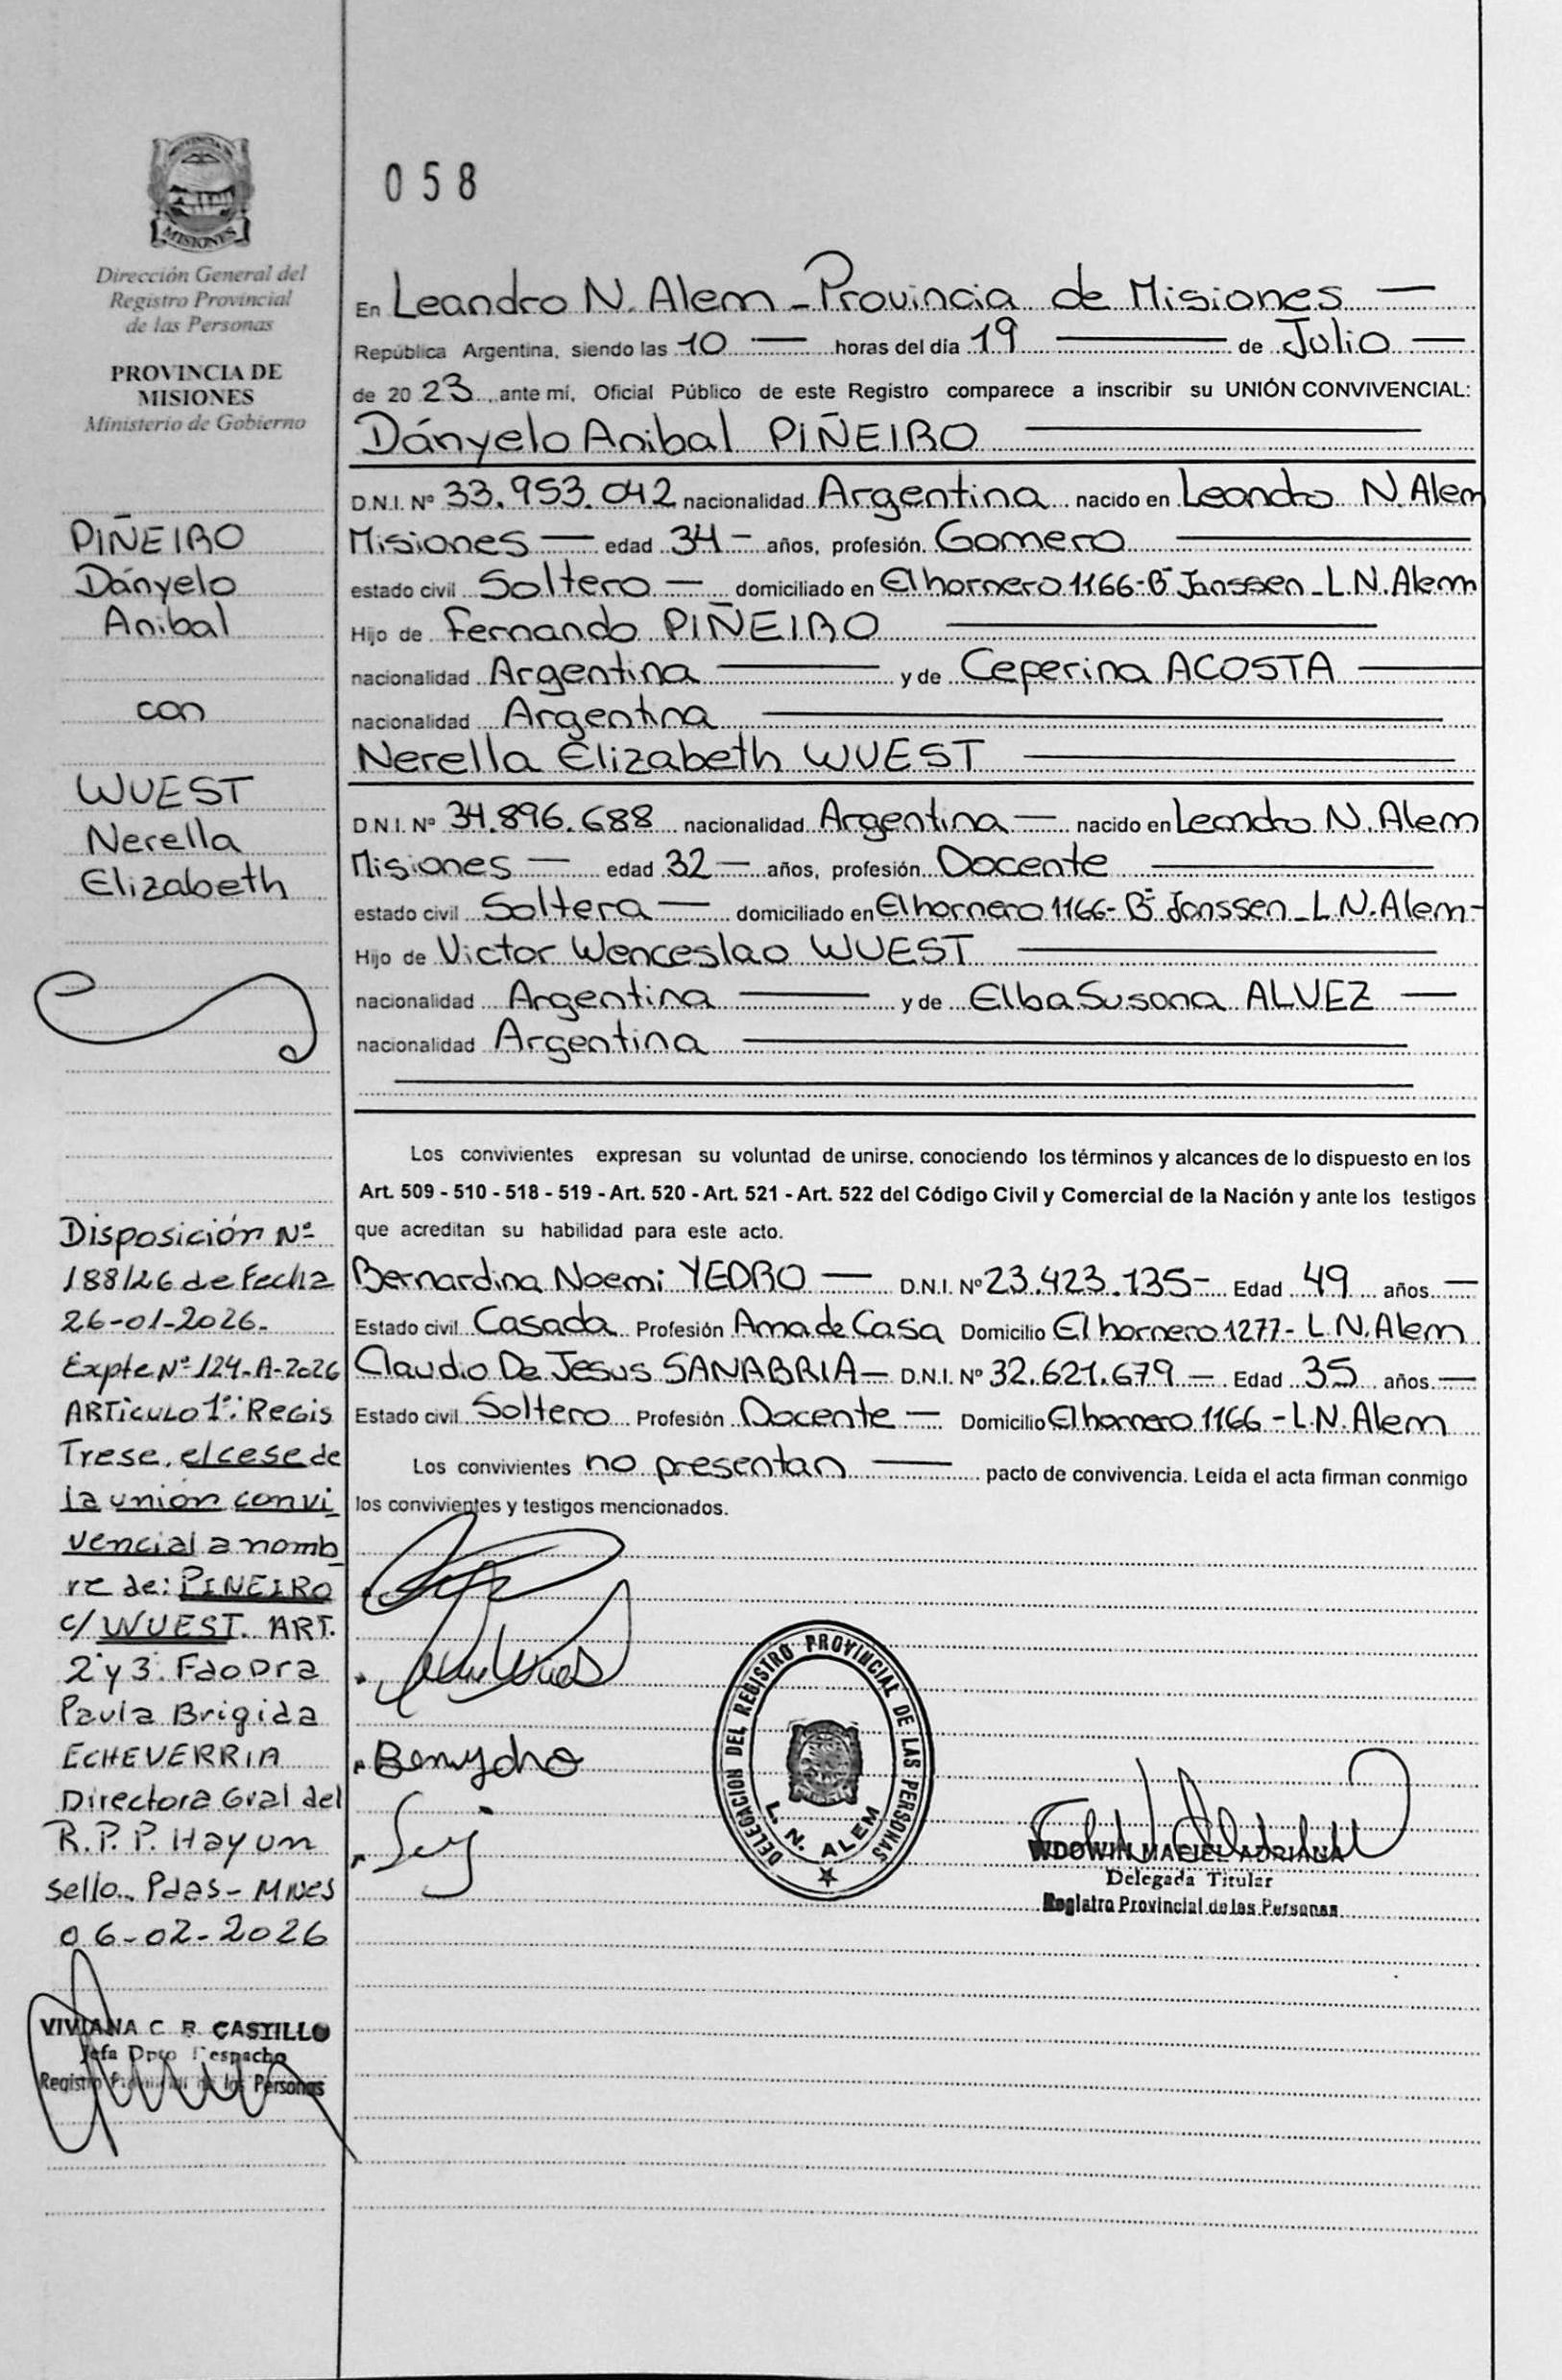 058
PROVINCIA DE
MISIONES
Dirección General del
Registro Provincial
de las Personas
PROVINCIA DE
MISIONES
Ministerio de Gobierno
PIÑEIRO
Dányelo
Anibal
con
WUEST
Nerella
Elizabeth
Disposición Nº
188/26 de Fecha
26-01-2026.
Expte Nº 124-A-2026
ARTiculo 1º: Regis
Trese, el cese de
la unión convi
vencial a nomb
re de: PINEIRO
c/ WUEST. ART.
2º y 3º. Fdo Dra
Paula Brigida
ECHEVERRIA
Directora Gral del
R.P.P. Hay un
sello.. Pdas - MNes
06-02-2026
VIVIANA C. R. CASTILLO
Jefa Dpto Despacho
Registro Provincial de las Personas
En Leandro N. Alem - Provincia de Misiones —
República Argentina, siendo las 10 — horas del día 19 — de Julio —
de 2023, ante mí, Oficial Público de este Registro comparece a inscribir su UNIÓN CONVIVENCIAL:
Dányelo Anibal PIÑEIRO —
D.N.I. Nº 33.953.042 nacionalidad Argentina nacido en Leandro N. Alem
Misiones — edad 34 — años, profesión Gomero —
estado civil Soltero — domiciliado en El hornero 1166-Bº Janssen - L.N. Alem
Hijo de Fernando PIÑEIRO —
nacionalidad Argentina — y de Ceperina ACOSTA —
nacionalidad Argentina —
Nerella Elizabeth WUEST —
D.N.I. Nº 34.896.688 nacionalidad Argentina — nacido en Leandro N. Alem
Misiones — edad 32 — años, profesión Docente —
estado civil Soltera — domiciliado en El hornero 1166- Bº Janssen - L.N. Alem -
Hijo de Victor Wenceslao WUEST —
nacionalidad Argentina — y de Elba Susana ALVEZ —
nacionalidad Argentina —
Los convivientes expresan su voluntad de unirse, conociendo los términos y alcances de lo dispuesto en los
Art. 509 - 510 - 518 - 519 - Art. 520 - Art. 521 - Art. 522 del Código Civil y Comercial de la Nación y ante los testigos
que acreditan su habilidad para este acto.
Bernardina Noemi YEDRO — D.N.I. Nº 23.423.135 - Edad 49 años —
Estado civil Casada Profesión Ama de Casa Domicilio El hornero 1277 - L.N. Alem
Claudio De Jesus SANABRIA — D.N.I. Nº 32.621.679 — Edad 35 años —
Estado civil Soltero Profesión Docente — Domicilio El hornero 1166 - L.N. Alem
Los convivientes no presentan — pacto de convivencia. Leída el acta firman conmigo
los convivientes y testigos mencionados.
DELEGACION DEL REGISTRO PROVINCIAL DE LAS PERSONAS
L. N. ALEM
WDOWIN MACIEL ADRIANA
Delegada Titular
Registro Provincial de las Personas